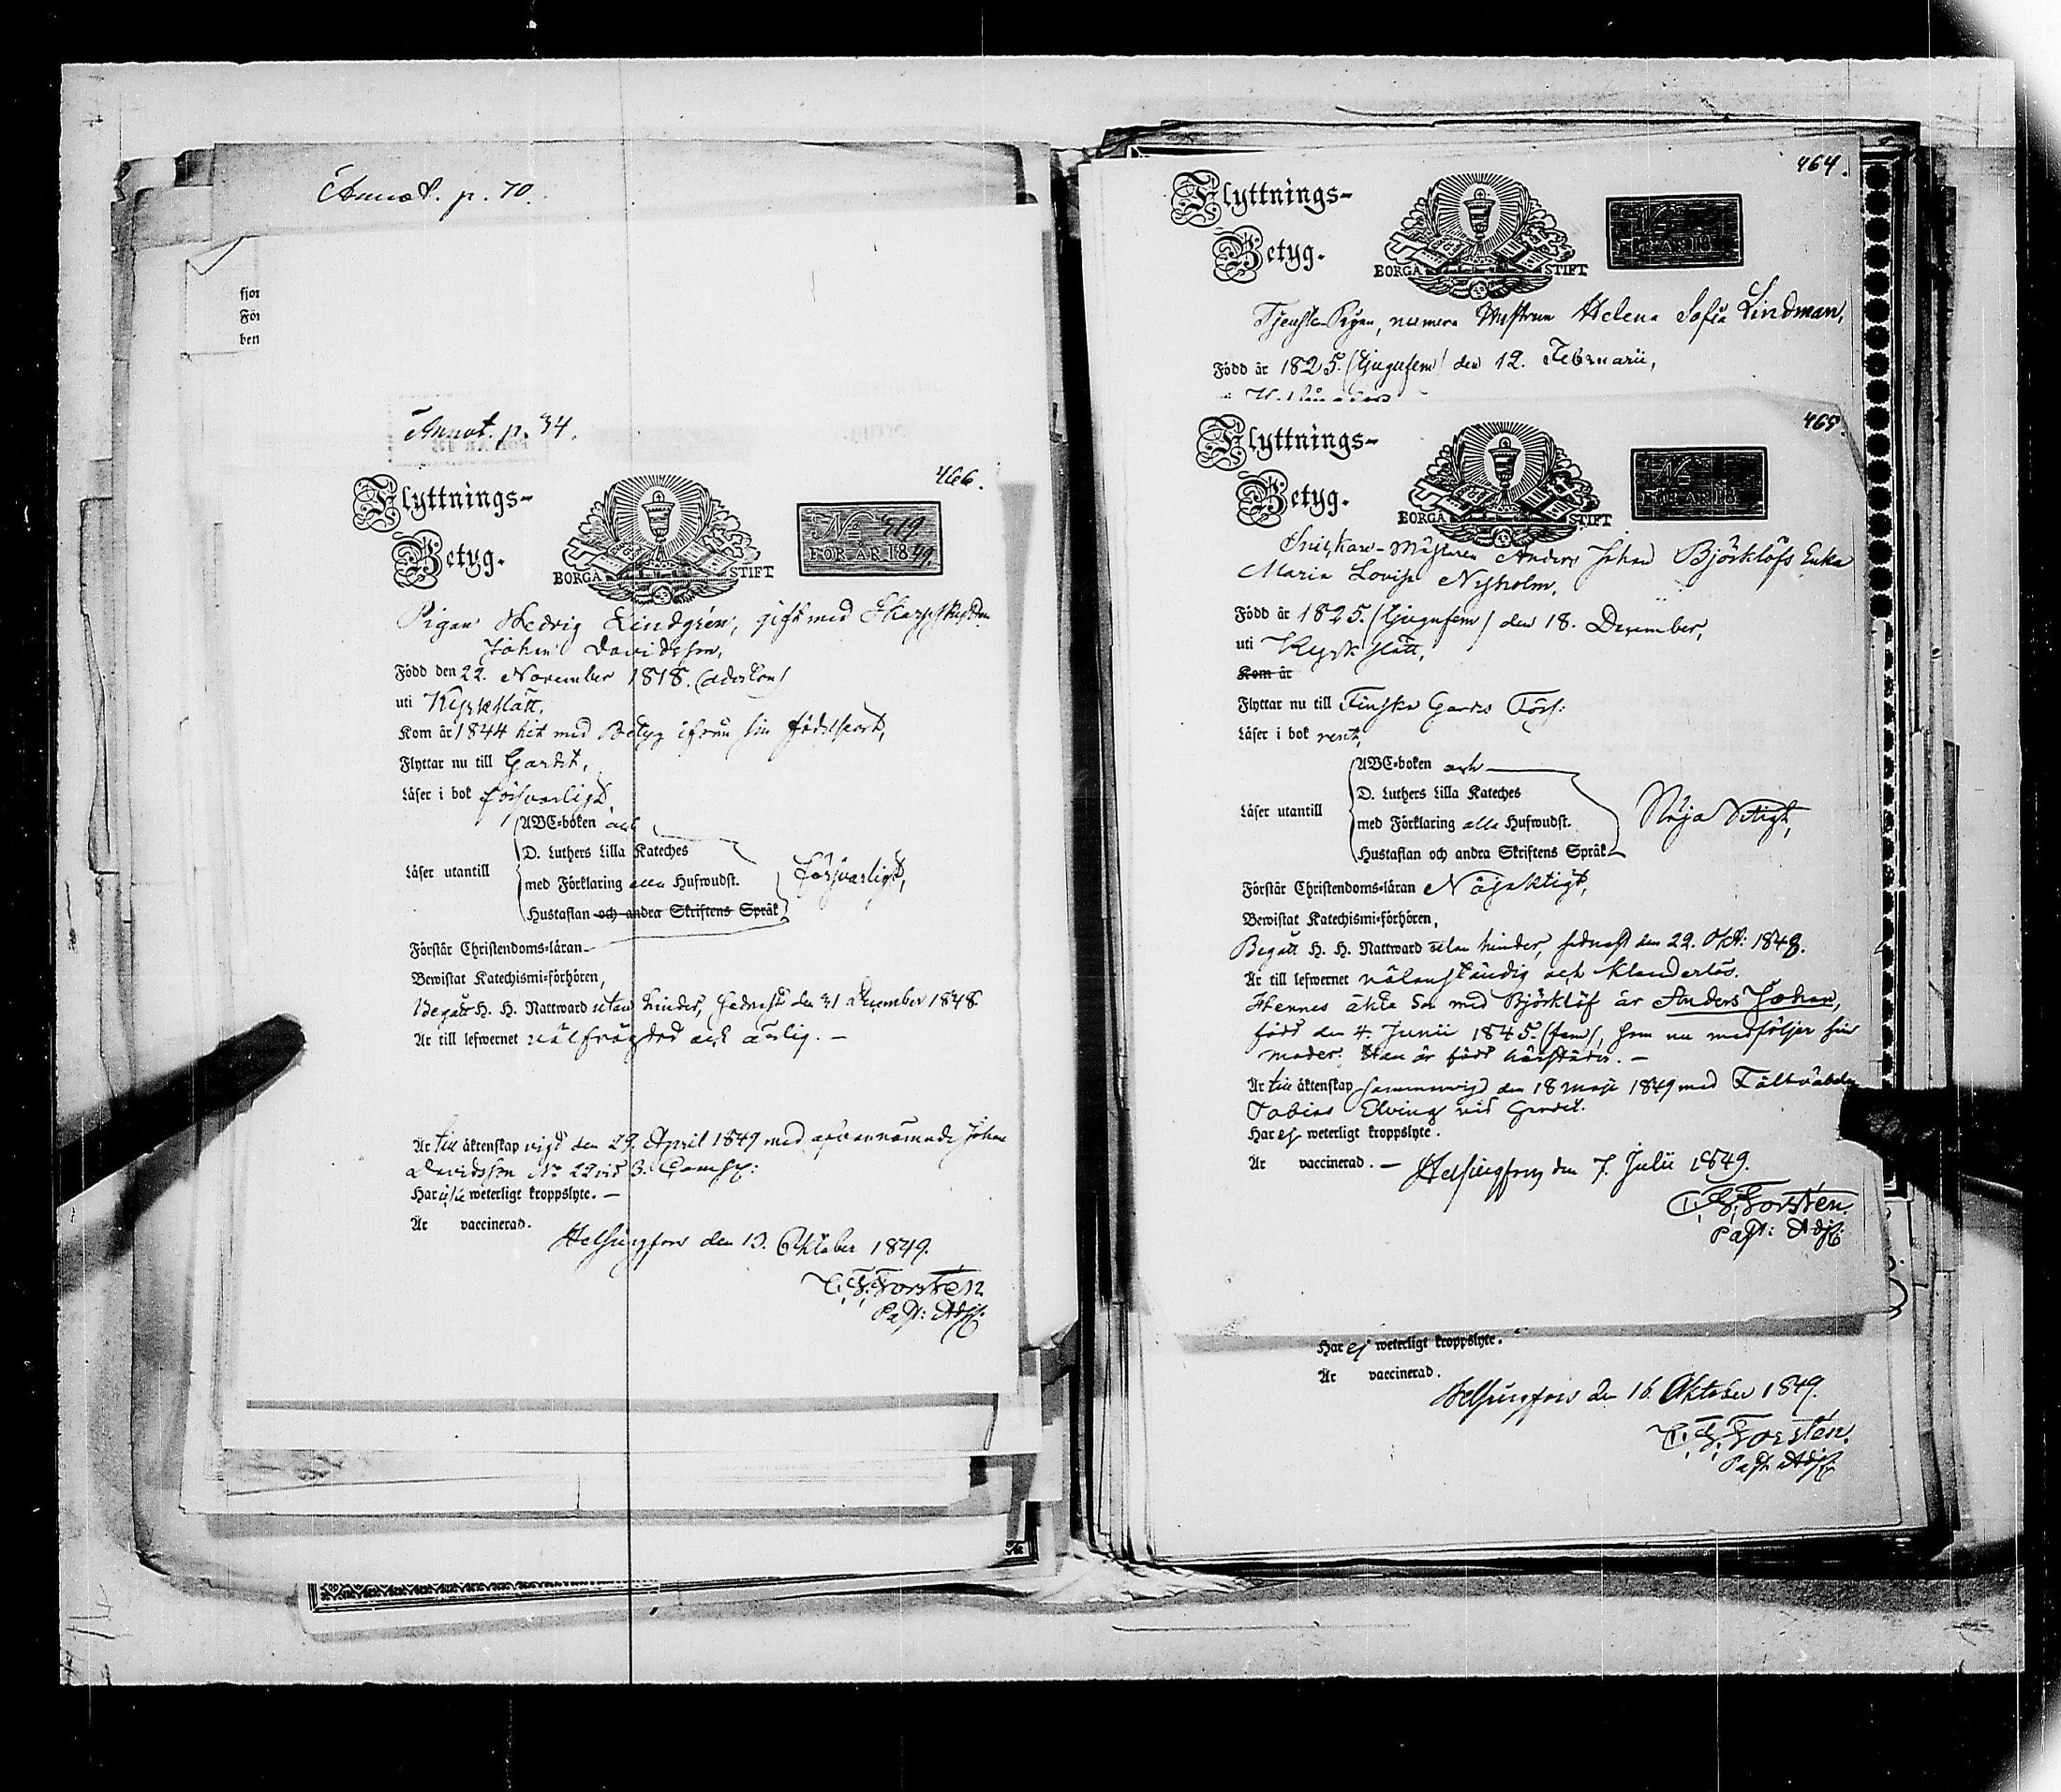 Annot. p. 70.
fjor
För
ben
Annot. p. 34.
466.
Flyttnings-
Betyg.
BORGÅ STIFT
No 419
FÖR ÅR 1849.
Pigan Hedvig Lindgrén, gift med Skarpskytten
Johan Davidsson,
Född den 22. November 1818. (aderton)
uti Kyrkslätt,
Kom år 1844 hit med Betyg ifrån sin födelseort,
Flyttar nu till Gardet,
Läser i bok försvarligt,
ABC-boken och
D. Luthers Lilla Kateches
Läser utantill
med Förklaring alla Hufwudst.
försvarligt,
Hustaflan och andra Skriftens Språk
Förstår Christendoms-läran
Bewistat Katechismi-förhören,
Begått H. H. Nattward utan hinder, sednast den 31 December 1848
Är till lefwernet välfrägdad och ärlig. —
Är till äktenskap vigd den 29. April 1849 med ofvannämnde Johan
Davidsson No 22 vid 3. Comp:
Har icke weterligt kroppslyte. —
Är vaccinerad.
Helsingfors den 13. Oktober 1849.
C. G. Forstén
Past: Adj:
464.
Flyttnings-
Betyg.
BORGÅ STIFT
No
FÖR ÅR 18
Tjenste Pigan, numera Hustrun Helena Sofia Lindman,
Född år 1825. (tjugufem) den 12. Februarii,
465.
Flyttnings-
Betyg.
BORGÅ STIFT
No
FÖR ÅR 18
Snickare-Mästaren Anders Johan Björklöfs Enka
Maria Lovisa Nyholm,
Född år 1825. (tjugufem) den 18. December,
uti Kyrkslätt,
Kom år
Flyttar nu till Finska Gardes Förs:
Läser i bok rent,
ABC-boken och
D. Luthers Lilla Kateches
Läser utantill
med Förklaring alla Hufwudst.
Nöjaktigt,
Hustaflan och andra Skriftens Språk
Förstår Christendoms-läran Nöjaktigt,
Bewistat Katechismi-förhören,
Begått H. H. Nattward utan hinder, sednast den 22. Okt: 1848.
Är till lefwernet välanständig och klanderlös.
Hennes äkta Son med Björklöf är Anders Johan,
född den 4. Junii 1845. (fem), som nu medföljer sin
moder. Han är född härstädes. —
Är till äktenskap sammanvigd den 18 Maji 1849 med Fältväbeln
Tobias Elving vid Gardet.
Har ej weterligt kroppslyte.
Är vaccinerad. — Helsingfors den 7. Julii 1849.
C. G. Forstén.
Past: Adj:
Har ej weterligt kroppslyte.
Är vaccinerad.
Helsingfors den 16. Oktober 1849.
C. G. Forstén.
Past. Adj: